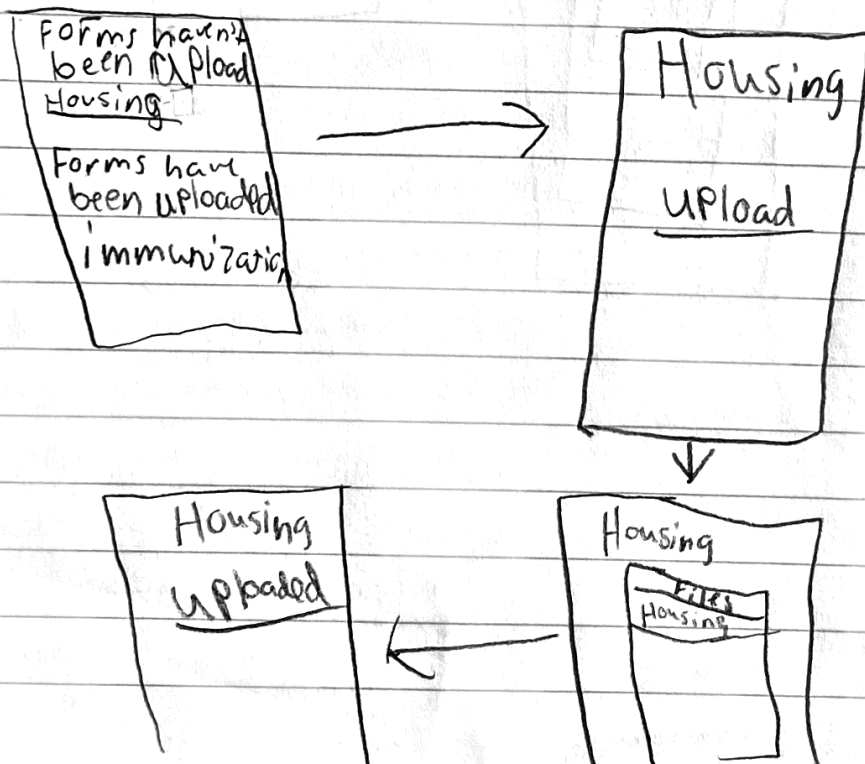 Forms haven't
been upload
Housing
Forms have
been uploaded
immunization
Housing
upload
Housing
Files
Housing
Housing
uploaded